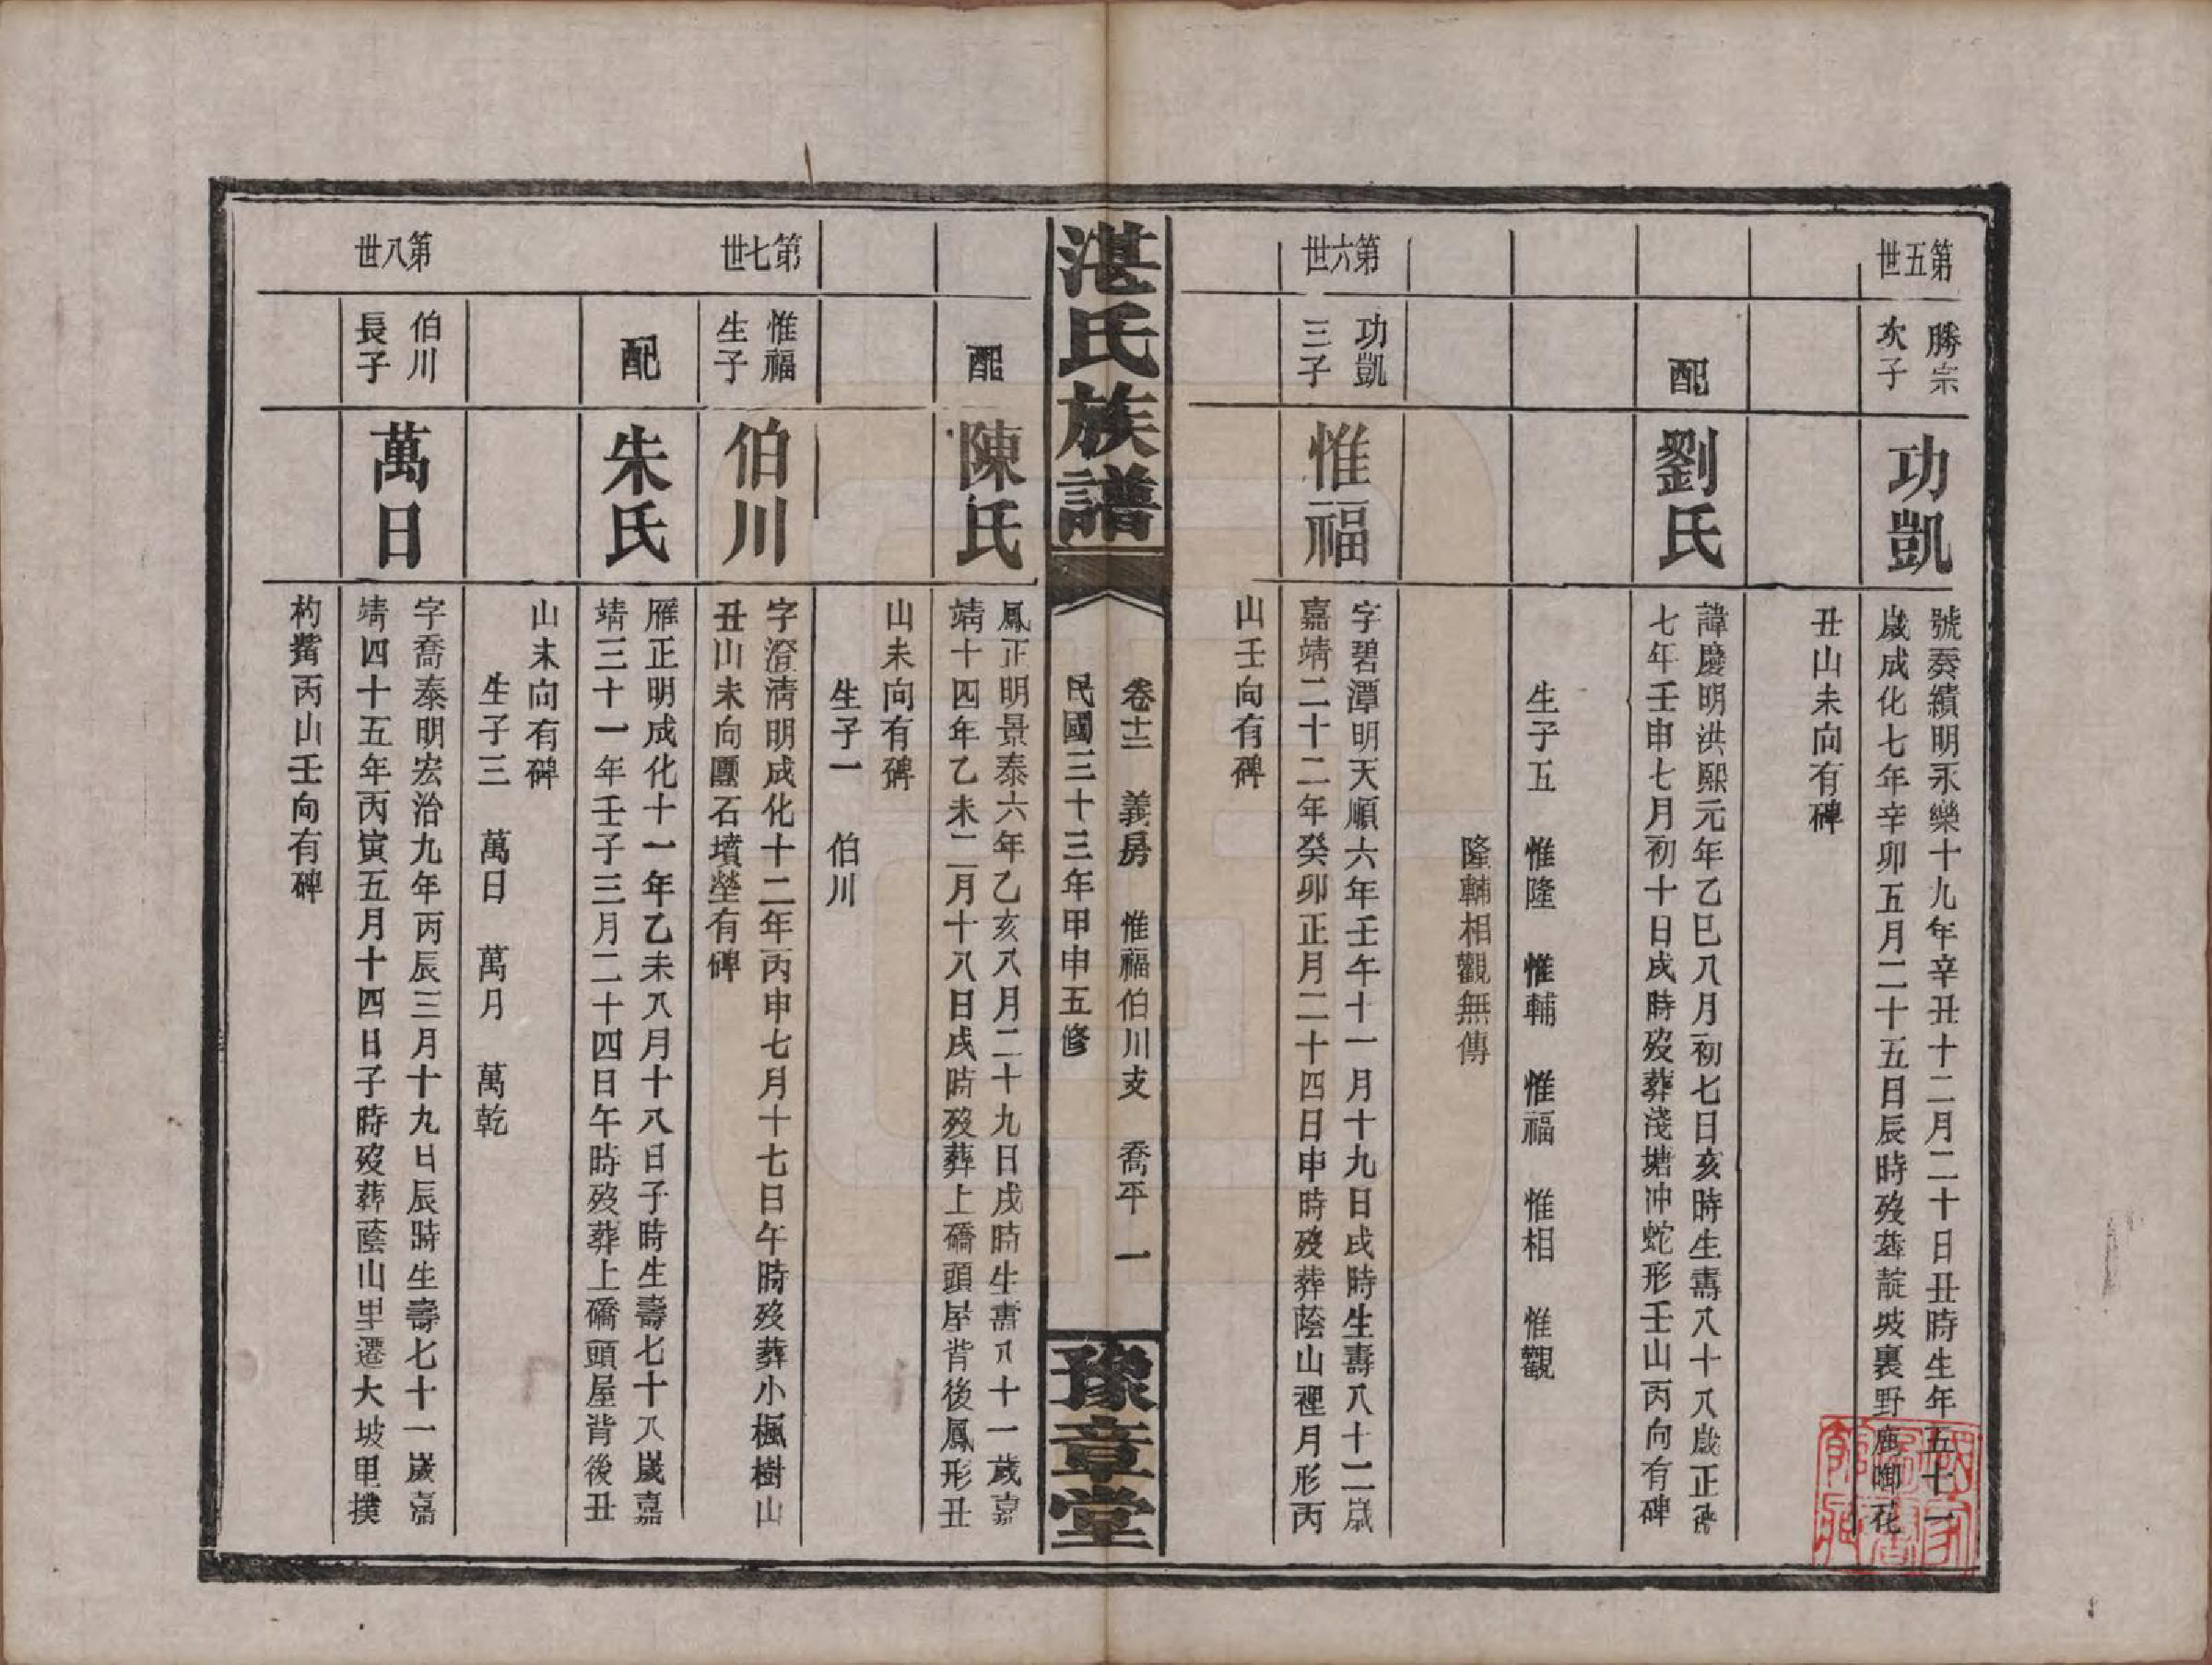 第五世
勝宗
次子
功凱
號奏績明永樂十九年辛丑十二月二十日丑時生年五十一
歲成化七年辛卯五月二十五日辰時歿葬靛坡裏野鹿啣花
丑山未向有碑
配
劉氏
諱慶明洪熙元年乙巳八月初七日亥時生壽八十八歲正德
七年壬申七月初十日戌時歿葬淺塘冲蛇形壬山丙向有碑
生子五 惟隆 惟輔 惟福 惟相 惟觀
隆輔相觀無傳
第六世
功凱
三子
惟福
字碧潭明天順六年壬午十一月十九日戌時生壽八十二歲
嘉靖二十二年癸卯正月二十四日申時歿葬蔭山裡月形丙
山壬向有碑
湛氏族譜
卷十二 義房 惟福伯川支 喬平 一
民國三十三年甲申五修
豫章堂
配
陳氏
鳳正明景泰六年乙亥八月二十九日戌時生壽八十一歲嘉
靖十四年乙未二月十八日戌時歿葬上礄頭屋背後鳳形丑
山未向有碑
生子一 伯川
第七世
惟福
生子
伯川
字澄清明成化十二年丙申七月十七日午時歿葬小楓樹山
丑山未向團石墳塋有碑
配
朱氏
雁正明成化十一年乙未八月十八日子時生壽七十八歲嘉
靖三十一年壬子三月二十四日午時歿葬上礄頭屋背後丑
山未向有碑
生子三 萬日 萬月 萬乾
第八世
伯川
長子
萬日
字喬泰明宏治九年丙辰三月十九日辰時生壽七十一歲嘉
靖四十五年丙寅五月十四日子時歿葬蔭山里遷大坡里撲
杓觜丙山壬向有碑